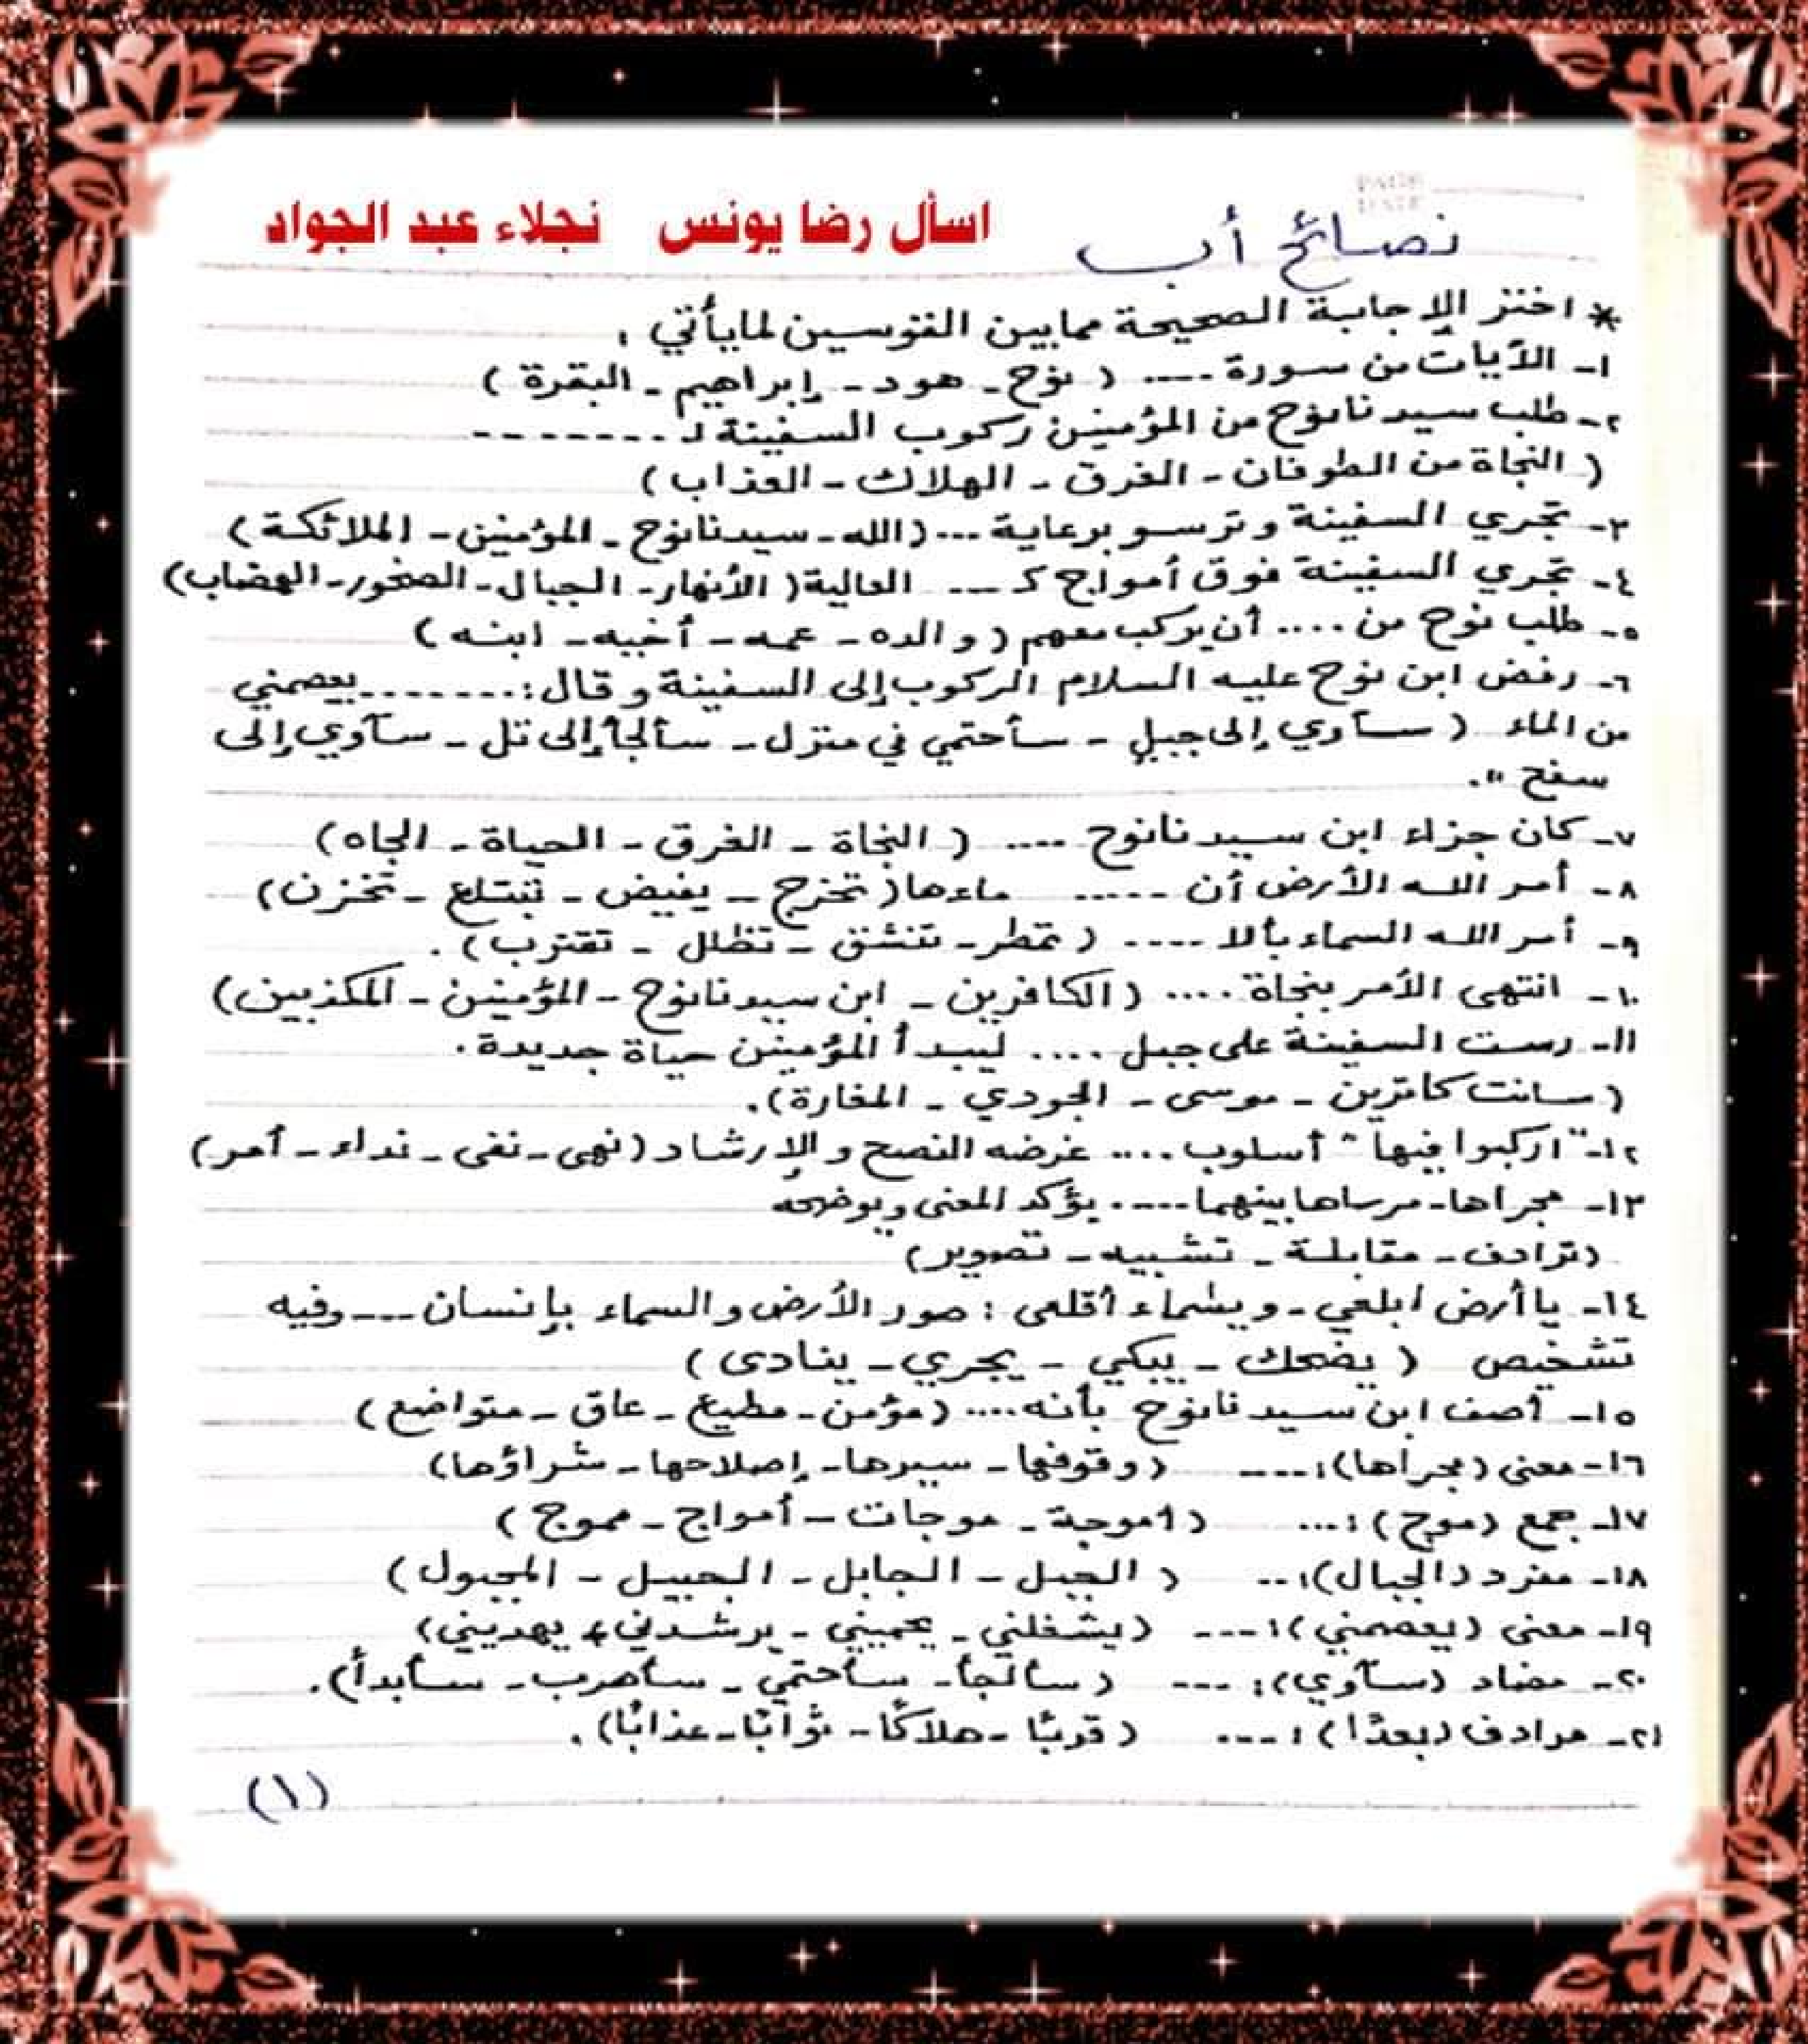 PAGE
DATE
نصائح أب
اسأل رضا يونس نجلاء عبد الجواد
* اختر الإجابة الصحيحة مما بين القوسين لما يأتي :
١- الآيات من سورة .... ( نوح - هود - إبراهيم - البقرة )
٢- طلب سيدنا نوح من المؤمنين ركوب السفينة لـ --------
( النجاة من الطوفان - الغرق - الهلاك - العذاب )
٣- تجري السفينة وترسو برعاية ... (الله - سيدنا نوح - المؤمنين - الملائكة)
٤- تجري السفينة فوق أمواج كـ ---- العالية ( الأنهار - الجبال - الصخور - الهضاب)
٥- طلب نوح من .... أن يركب معهم ( والده - عمه - أخيه - ابنه )
٦- رفض ابن نوح عليه السلام الركوب إلى السفينة وقال : ........ يعصمني
من الماء ( سآوي إلى جبلٍ - سأحتمي في منزل - سألجأ إلى تل - سآوي إلى
سفح ".
٧- كان جزاء ابن سيدنا نوح .... ( النجاة - الغرق - الحياة - الجاه )
٨- أمر الله الأرض أن ..... ماءها ( تخرج - يفيض - تبتلع - تخزن )
٩- أمر الله السماء بألا .... ( تمطر - تنشق - تظلل - تقترب ) .
١٠- انتهى الأمر بنجاة .... ( الكافرين - ابن سيدنا نوح - المؤمنين - المكذبين)
١١- رست السفينة على جبل .... ليبدأ المؤمنين حياة جديدة .
( سانت كاترين - موسى - الجودي - المغارة ) .
١٢- "اركبوا فيها" أسلوب .... غرضه النصح والإرشاد (نهى - نفى - نداء - أمر)
١٣- مجراها - مرساها بينهما .... يؤكد المعنى ويوضحه
(ترادف - مقابلة - تشبيه - تصوير)
١٤- يا أرض ابلعي - ويسماء أقلعى : صور الأرض والسماء بإنسان ---- وفيه
تشخيص ( يضحك - يبكي - يجري - ينادى )
١٥- أصف ابن سيدنا نوح بأنه .... (مؤمن - مطيع - عاق - متواضع)
١٦- معنى (مجراها) : .... ( وقوفها - سيرها - إصلاحها - شراؤها)
١٧- جمع (موج) : ... ( أموجة - موجات - أمواج - مموج )
١٨- مفرد (الجبال) : .. ( الجبل - الجابل - الجبيل - المجبول )
١٩- معنى (يعصمني) : --- (يشغلني - يحميني - يرشدني - يهديني)
٢٠- مضاد (سآوي) : --- ( سألجأ - سأحتمي - سأهرب - سأبدأ) .
٢١- مرادف (بعدًا) : ---- ( قربًا - هلاكًا - ثوابًا - عذابًا) .
(١)